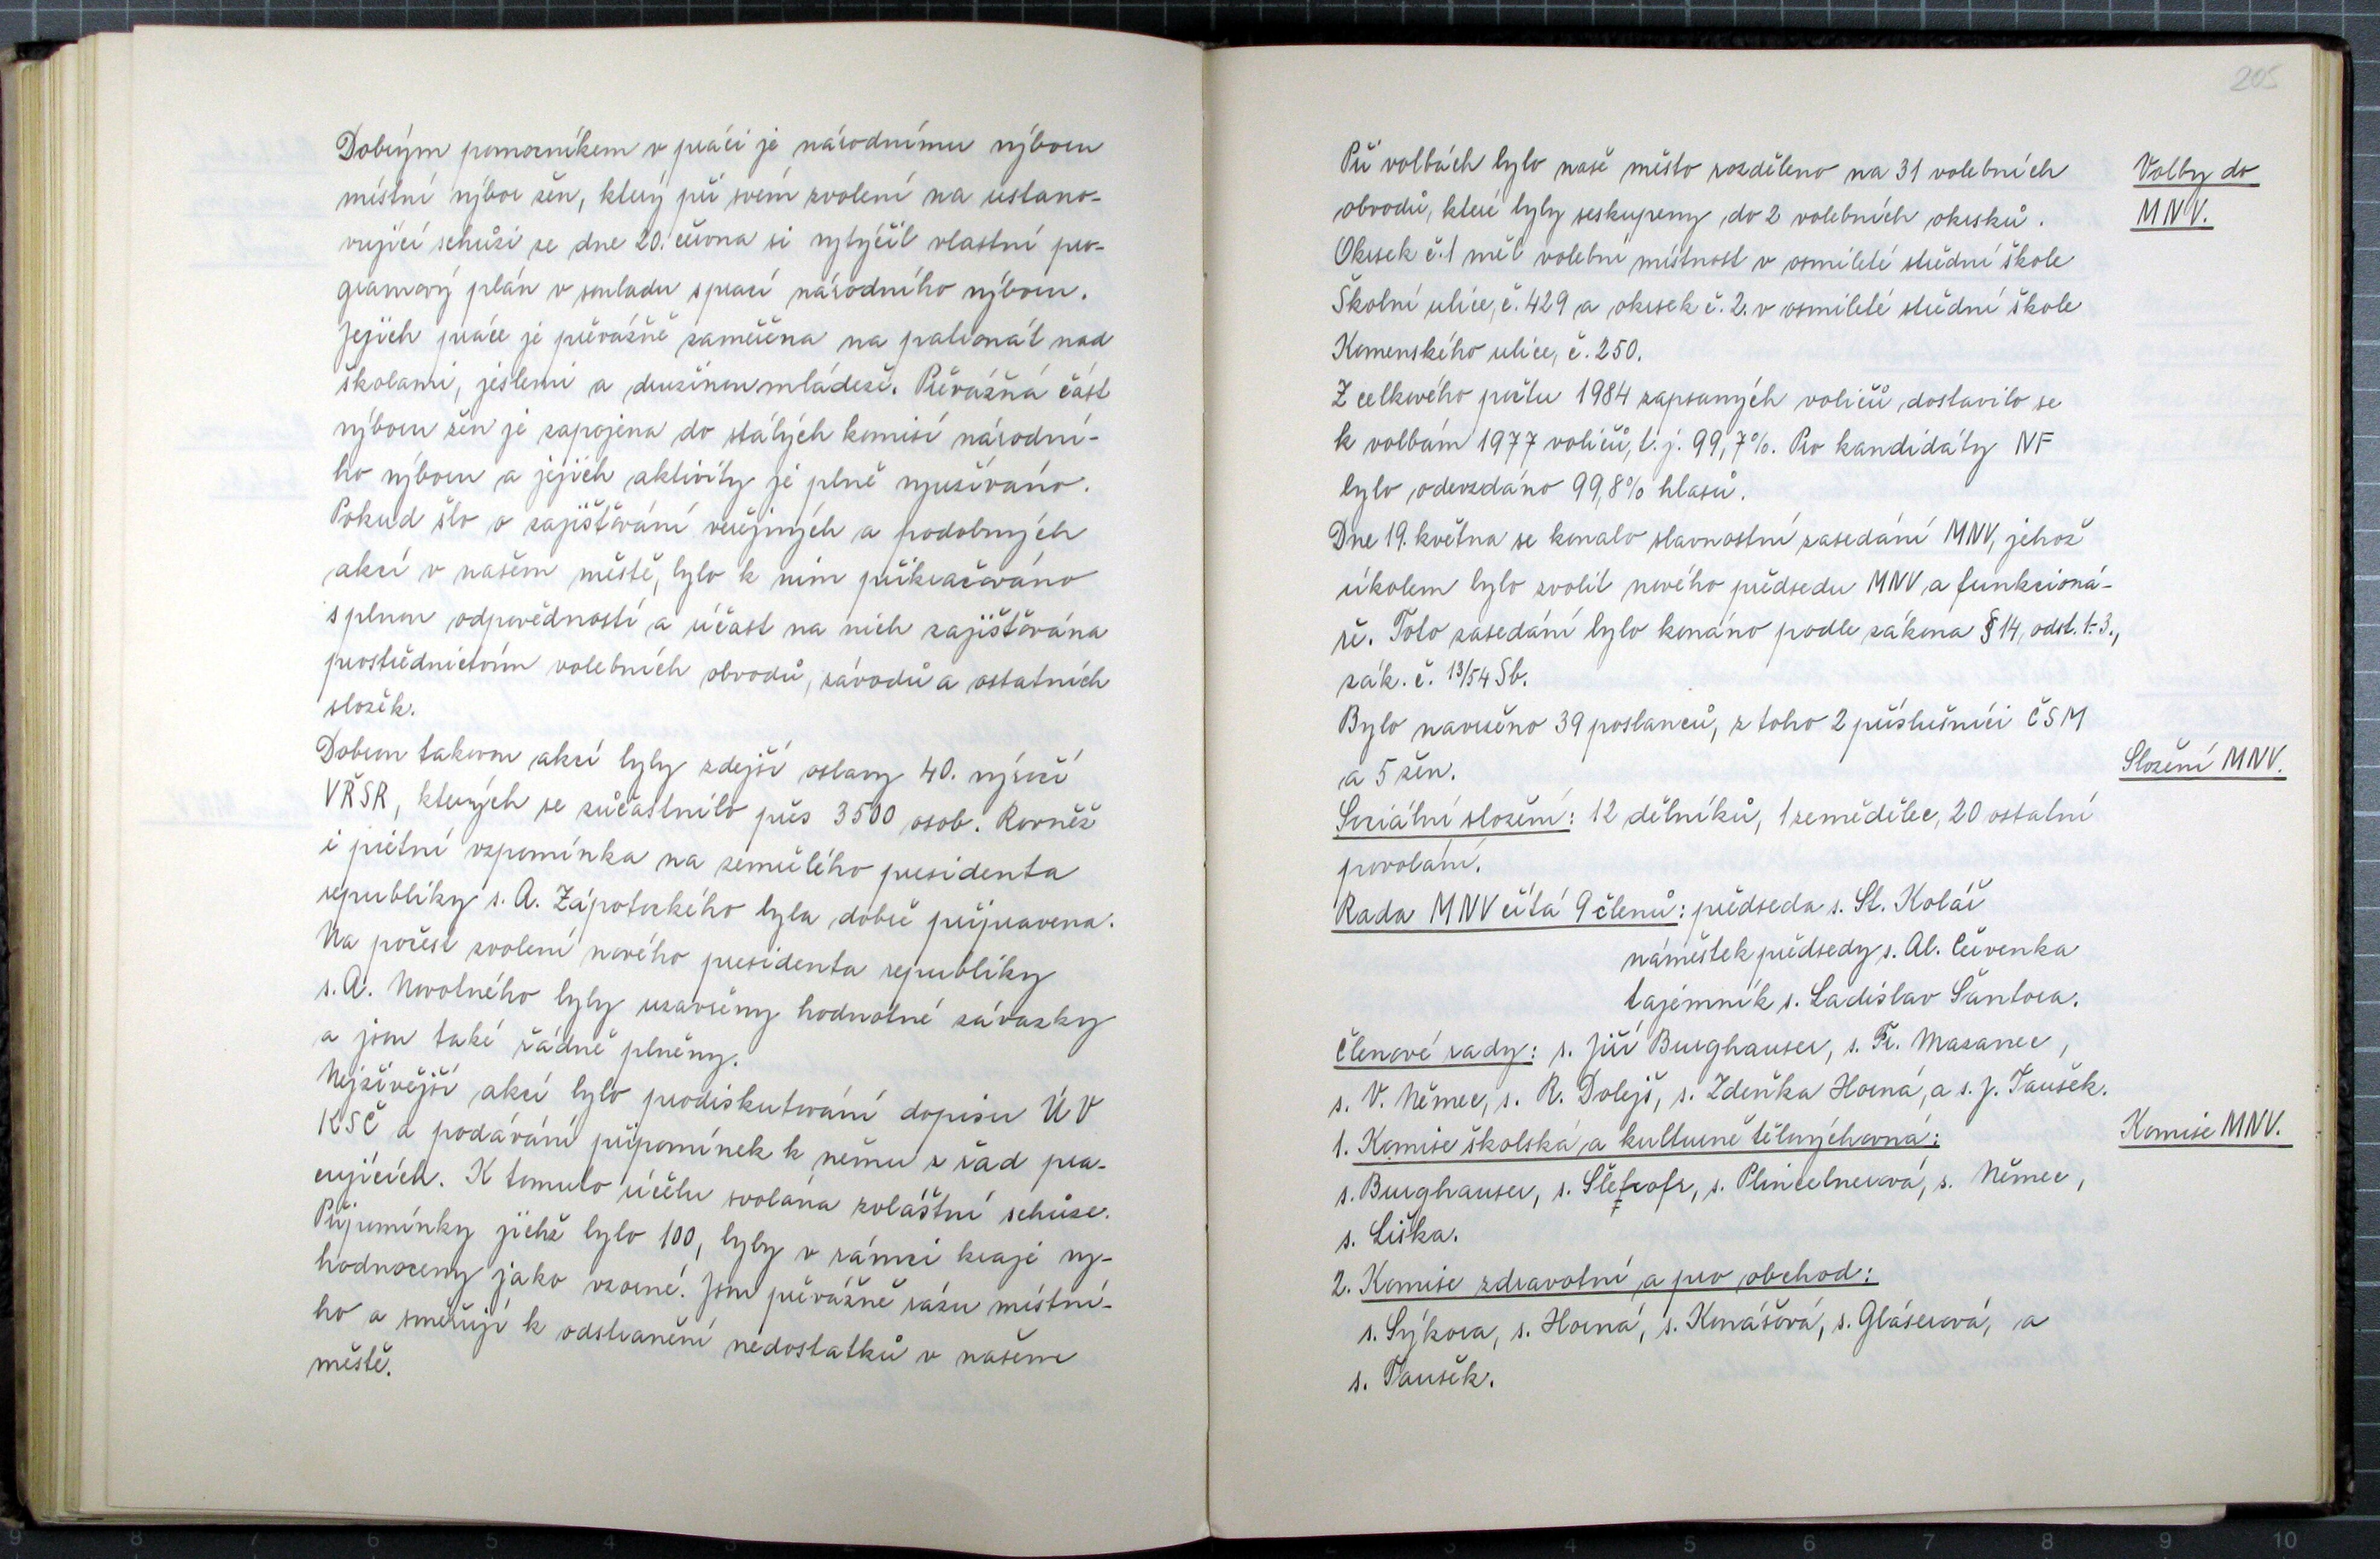 Dobrým pomocníkem v práci je národnímu výboru
místní výbor žen, který při svém zvolení na ustano-
vující schůzi ze dne 20. června si vytýčil vlastní pro-
gramový plán v souladu s prací národního výboru.
Jejich práce je převážně zaměřena na patronát nad
školami, jeslemi a družinou mládeže. Převážná část
výboru žen je zapojena do stálých komisí národní-
ho výboru a jejich aktivity je plně využíváno.
Pokud šlo o zajišťování veřejných a podobných
akcí v našem městě, bylo k nim přikračováno
s plnou odpovědností a účast na nich zajišťována
prostřednictvím volebních obvodů, závodů a ostatních
složek.
Dobrou takovou akcí byly zdejší oslavy 40. výročí
VŘSR, kterých se zúčastnilo přes 3500 osob. Rovněž
i pietní vzpomínka na zemřelého presidenta
republiky s. A. Zápotockého byla dobře připravena.
Na počest zvolení nového presidenta republiky
s. A. Novotného byly uzavřeny hodnotné závazky
a jsou také řádně plněny.
Nejživější akcí bylo prodiskutování dopisu ÚV
KSČ a podávání připomínek k němu z řad pra-
cujících. K tomuto účelu svolána zvláštní schůze.
Připomínky jichž bylo 100, byly v rámci kraje vy-
hodnoceny jako vzorné. Jsou převážně rázu místní-
ho a směřují k odstranění nedostatků v našem
městě.
205
Při volbách bylo naše město rozděleno na 31 volebních
obvodů, které byly seskupeny do 2 volebních okrsků.
Okrsek č. 1 měl volební místnost v osmileté střední škole
Školní ulice, č. 429 a okrsek č. 2. v osmileté střední škole
Komenského ulice, č. 250.
Z celkového počtu 1984 zapsaných voličů dostavilo se
k volbám 1977 voličů, t. j. 99,7%. Pro kandidáty NF
bylo odevzdáno 99,8% hlasů.
Dne 19. května se konalo slavnostní zasedání MNV, jehož
úkolem bylo zvolit nového předsedu MNV a funkcioná-
ře. Toto zasedání bylo konáno podle zákona § 14, odst. 1.-3.,
zák. č. 13/54 Sb.
Bylo navrženo 39 poslanců, z toho 2 příslušníci ČSM
a 5 žen.
Sociální složení: 12 dělníků, 1 zemědělec, 20 ostatní
povolání.
Rada MNV čítá 9 členů: předseda s. St. Kolář
náměstek předsedy s. Al. Červenka
tajemník s. Ladislav Šantora.
Členové rady: s. Jiří Burghauser, s. Fr. Mazanec,
s. V. Němec, s. R. Dolejš, s. Zdeňka Horná, a s. J. Taušek.
1. Komise školská a kulturně tělovýchovná:
s. Burghauser, s. Němec,
s. Liška.
2. Komise zdravotní a pro obchod:
s. Sýkora, s. Horná, s. Konášová, s. Gláserová, a
s. Taušek.
Volby do
MNV.
Složení MNV.
Komise MNV.